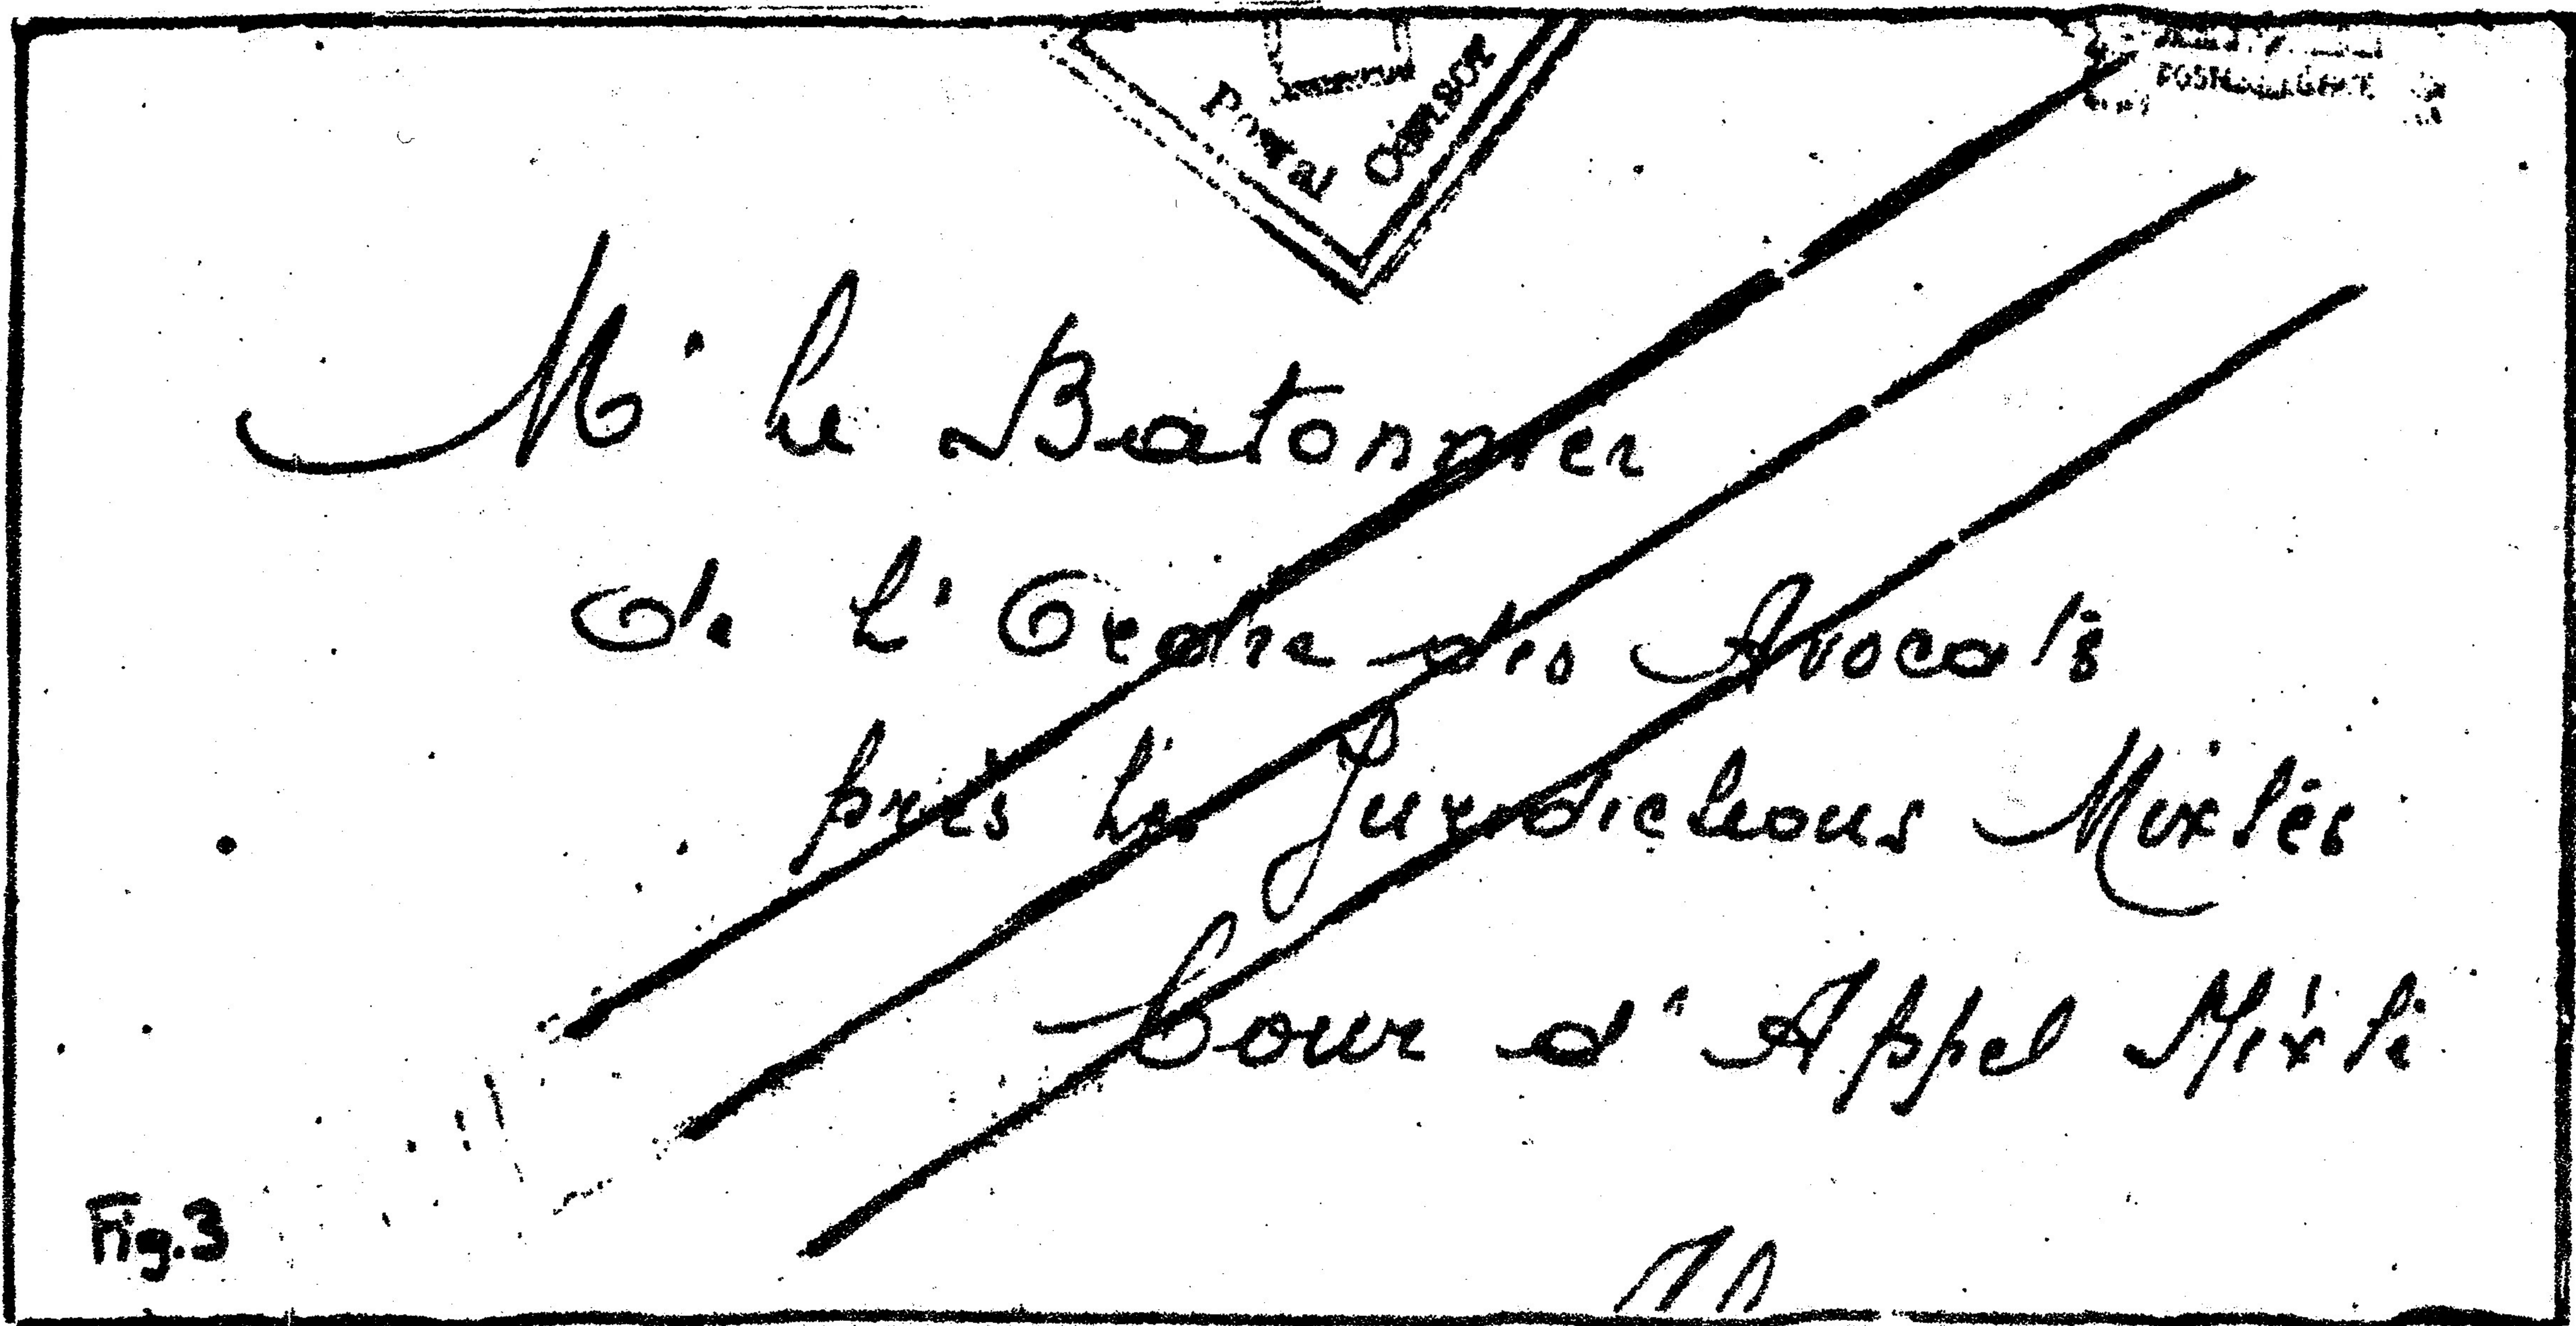 Postal Censor
M' Le Batonnier
de L'Ordre des Avocats
près les Juridictions Mixtes
Cour d'Appel Mixte
Fig.3